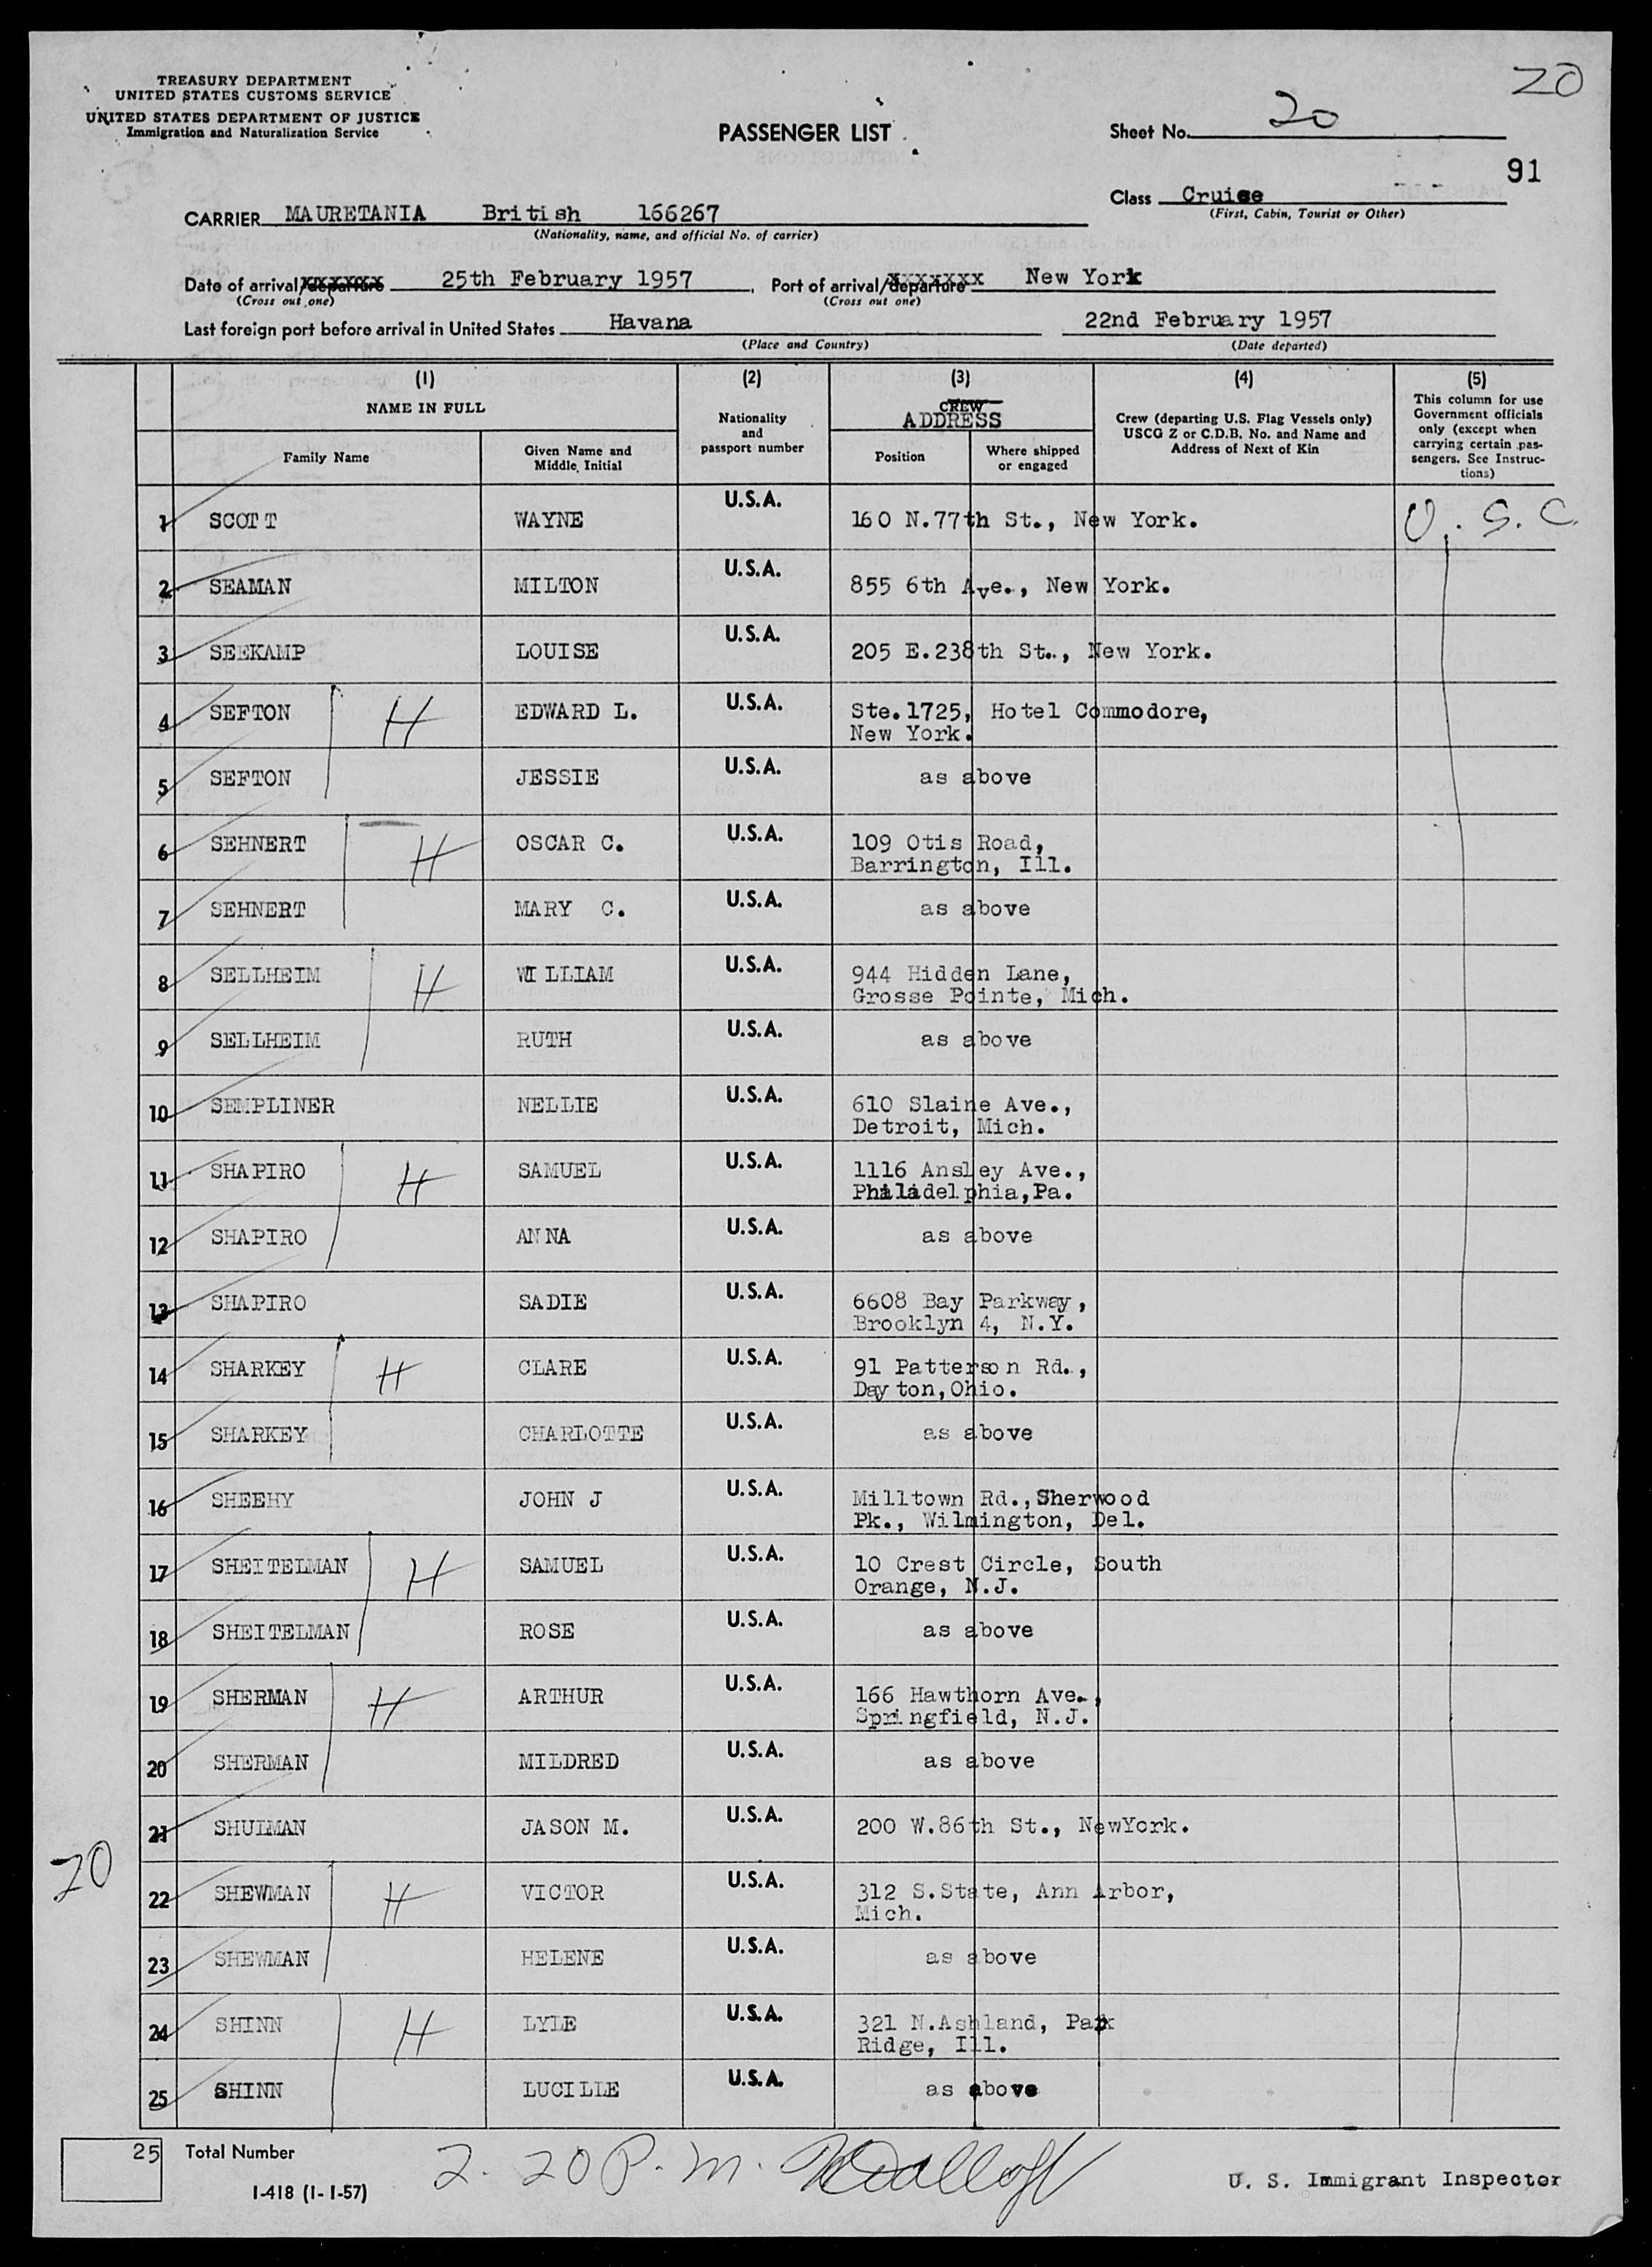 20
TREASURY DEPARTMENT
UNITED STATES CUSTOMS SERVICE
UNITED STATES DEPARTMENT OF JUSTICE
Immigration and Naturalization Service
PASSENGER LIST
Sheet No. 20
91
Class Cruise
(First, Cabin, Tourist or Other)
CARRIER MAURETANIA British 166267
(Nationality, name, and official No. of carrier)
Date of arrival/departure 25th February 1957, Port of arrival/departure New York
(Cross out one) (Cross out one)
Last foreign port before arrival in United States Havana 22nd February 1957
(Place and Country) (Date departed)
(1) (2) (3) (4) (5)
NAME IN FULL
Family Name
Given Name and
Middle Initial
Nationality
and
passport number
CREW
ADDRESS
Position
Where shipped
or engaged
Crew (departing U.S. Flag Vessels only)
USCG Z or C.D.B. No. and Name and
Address of Next of Kin
This column for use
Government officials
only (except when
carrying certain pas-
sengers. See Instruc-
tions)
1 SCOTT WAYNE U.S.A. 160 N.77th St., New York. U.S.C
2 SEAMAN MILTON U.S.A. 855 6th Ave., New York.
3 SEEKAMP LOUISE U.S.A. 205 E.238th St., New York.
4 SEFTON H EDWARD L. U.S.A. Ste.1725, Hotel Commodore,
New York.
5 SEFTON JESSIE U.S.A. as above
6 SEHNERT H OSCAR C. U.S.A. 109 Otis Road,
Barrington, Ill.
7 SEHNERT MARY C. U.S.A. as above
8 SELLHEIM H WILLIAM U.S.A. 944 Hidden Lane,
Grosse Pointe, Mich.
9 SELLHEIM RUTH U.S.A. as above
10 SEMPLINER NELLIE U.S.A. 610 Slaine Ave.,
Detroit, Mich.
11 SHAPIRO H SAMUEL U.S.A. 1116 Ansley Ave.,
Philadelphia,Pa.
12 SHAPIRO ANNA U.S.A. as above
13 SHAPIRO SADIE U.S.A. 6608 Bay Parkway,
Brooklyn 4, N.Y.
14 SHARKEY H CLARE U.S.A. 91 Patterson Rd.,
Dayton,Ohio.
15 SHARKEY CHARLOTTE U.S.A. as above
16 SHEEHY JOHN J U.S.A. Milltown Rd.,Sherwood
Pk., Wilmington, Del.
17 SHEITELMAN H SAMUEL U.S.A. 10 Crest Circle, South
Orange, N.J.
18 SHEITELMAN ROSE U.S.A. as above
19 SHERMAN H ARTHUR U.S.A. 166 Hawthorn Ave.,
Springfield, N.J.
20 SHERMAN MILDRED U.S.A. as above
21 SHULMAN JASON M. U.S.A. 200 W.86th St., NewYork.
20
22 SHEWMAN H VICTOR U.S.A. 312 S.State, Ann Arbor,
Mich.
23 SHEWMAN HELENE U.S.A. as above
24 SHINN H LYLE U.S.A. 321 N.Ashland, Park
Ridge, Ill.
25 SHINN LUCILLE U.S.A. as above
25 Total Number
2.20 P.m.
I-418 (1-1-57)
U. S. Immigrant Inspector